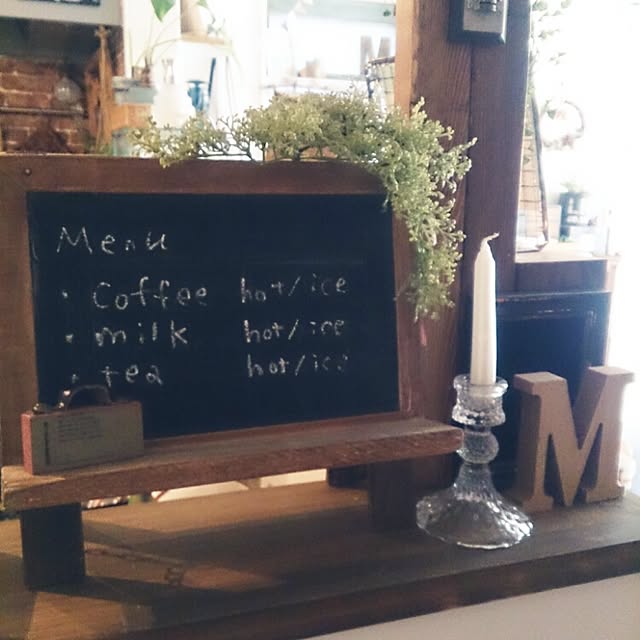 Menu
· Coffee hot/ice
· milk hot/ice
· tea hot/ice
M